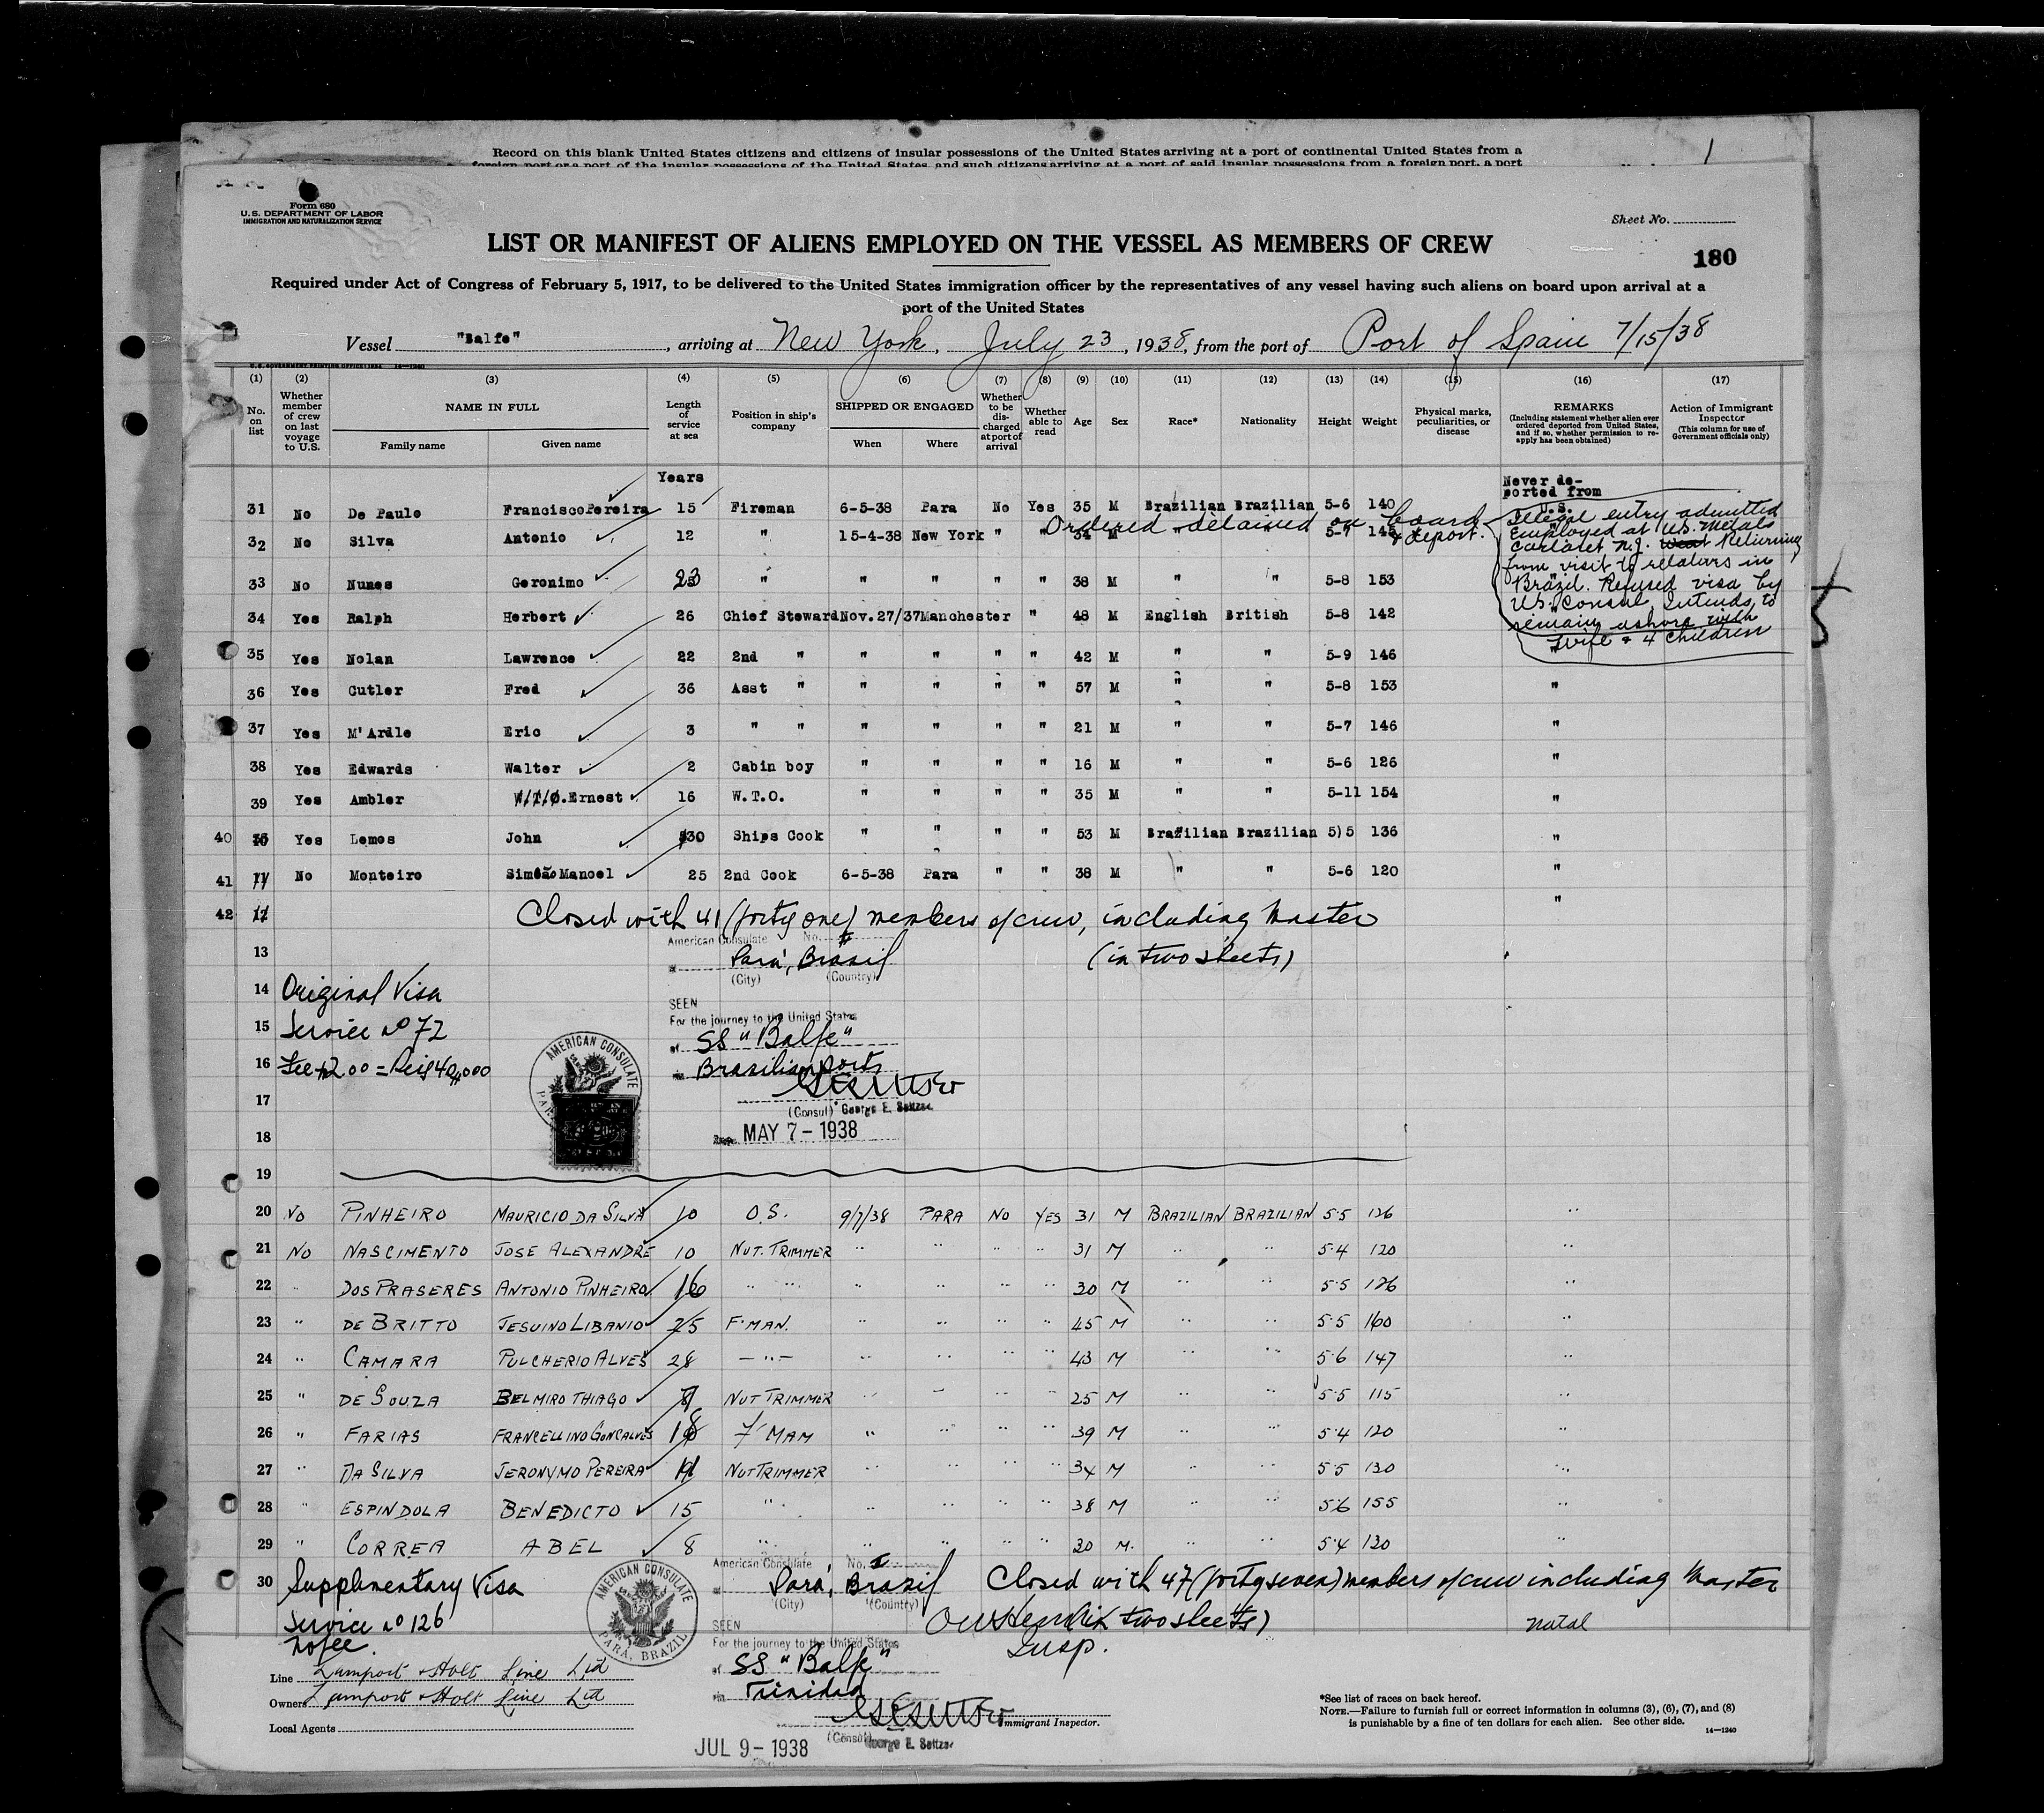 Record on this blank United States citizens and citizens of insular possessions of the United States arriving at a port of continental United States from a
foreign port or a port of the insular possessions of the United States, and such citizens arriving at a port of said insular possessions from a foreign port, a port
1
Form 680
U.S. DEPARTMENT OF LABOR
IMMIGRATION AND NATURALIZATION SERVICE
Sheet No.
180
LIST OR MANIFEST OF ALIENS EMPLOYED ON THE VESSEL AS MEMBERS OF CREW
Required under Act of Congress of February 5, 1917, to be delivered to the United States immigration officer by the representatives of any vessel having such aliens on board upon arrival at a
port of the United States
Vessel "Balfe", arriving at New York, July 23, 1938, from the port of Port of Spain 7/15/38
(1) (2) (3) (4) (5) (6) (7) (8) (9) (10) (11) (12) (13) (14) (15) (16) (17)
No. on list
Whether member of crew on last voyage to U.S.
NAME IN FULL
Family name
Given name
Length of service at sea
Position in ship's company
SHIPPED OR ENGAGED
When
Where
Whether to be discharged at port of arrival
Whether able to read
Age
Sex
Race*
Nationality
Height
Weight
Physical marks, peculiarities, or disease
REMARKS
(Including statement whether alien ever ordered deported from United States, and if so, whether permission to re-apply has been obtained)
Action of Immigrant Inspector
(This column for use of Government officials only)
Years
Never de-
ported from
U.S.
31 No De Paulo Francisco Pereira 15 Fireman 6-5-38 Para No Yes 35 M Brazilian Brazilian 5-6 140
Ordered detained on board & deport.
32 No Silva Antonio 12 " 15-4-38 New York " " 34 M " " 5-7 145
Illegal entry admitted
employed at U.S. Metals
Carteret N.J. Returning
from visit to relatives in
Brazil. Refused visa by
U.S. Consul. Intends to
remain ashore with
wife & 4 children
33 No Nunes Geronimo 23 " " " " " 38 M " " 5-8 153
34 Yes Ralph Herbert 26 Chief Steward Nov. 27/37 Manchester " 48 M English British 5-8 142
35 Yes Nolan Lawrence 22 2nd " " " " " 42 M " " 5-9 146
36 Yes Cutler Fred 36 Asst " " " " " 57 M " " 5-8 153 "
37 Yes M'Ardle Eric 3 " " " " " " 21 M " " 5-7 146 "
38 Yes Edwards Walter 2 Cabin boy " " " " 16 M " " 5-6 126 "
39 Yes Ambler W.T.O. Ernest 16 W.T.O. " " " " 35 M " " 5-11 154 "
40 Yes Lemos John 30 Ships Cook " " " " 53 M Brazilian Brazilian 5)5 136 "
41 No Monteiro Simeão Manoel 25 2nd Cook 6-5-38 Para " " 38 M " " 5-6 120 "
42 Closed with 41 (forty one) members of crew, including Master "
13 (in two sheets)
American Consulate No.
Pará, Brasil
(City) (Country)
14 Original Visa
SEEN
For the journey to the United States
15 Service no 72
of SS "Balfe"
16 Fee $2.00 = Reis 40$000
via Brazilian ports
17
(Consul) George E. Seltzer
18 MAY 7 - 1938
AMERICAN CONSULATE
PARA
19
20 No PINHEIRO MAURICIO DA SILVA 10 O.S. 9/7/38 PARA NO YES 31 M BRAZILIAN BRAZILIAN 5·5 126 "
21 NO NASCIMENTO JOSE ALEXANDRE 10 NUT. TRIMMER " " " " 31 M " " 5·4 120 "
22 " DOS PRASERES ANTONIO PINHEIRO 16 " " " " " " 30 M " " 5·5 126 "
23 " DE BRITTO JESUINO LIBANIO 25 F'MAN. " " " " 45 M " " 5·5 160 "
24 " CAMARA PULCHERIO ALVES 28 " " " " " 43 M " " 5·6 147 "
25 " DE SOUZA BELMIRO THIAGO NUT TRIMMER " " " " 25 M " " 5·5 115 "
26 " FARIAS FRANCELLINO GONCALVES 18 F'MAM " " " " 39 M " " 5·4 120 "
27 " DA SILVA JERONYMO PEREIRA NUT TRIMMER " " " " 34 M " " 5·5 130 "
28 " ESPINDOLA BENEDICTO 15 " " " " " 38 M " " 5·6 155 "
29 " CORREA ABEL 8 " " " " " 20 M " " 5·4 120 "
30 Supplimentary Visa
American Consulate No.
Pará, Brasil
(City) (Country)
Closed with 47 (forty seven) members of crew including Master
two sheets)
Insp.
Natal
Service no 126
No fee.
AMERICAN CONSULATE
PARA, BRAZIL
SEEN
For the journey to the United States
of SS "Balfe"
via Trinidad
Line Lamport & Holt Line Ltd
Owners Lamport & Holt Line Ltd
Local Agents
Immigrant Inspector.
(Consul) George E. Seltzer
JUL 9 - 1938
*See list of races on back hereof.
NOTE.—Failure to furnish full or correct information in columns (3), (6), (7), and (8)
is punishable by a fine of ten dollars for each alien. See other side.
14—1240